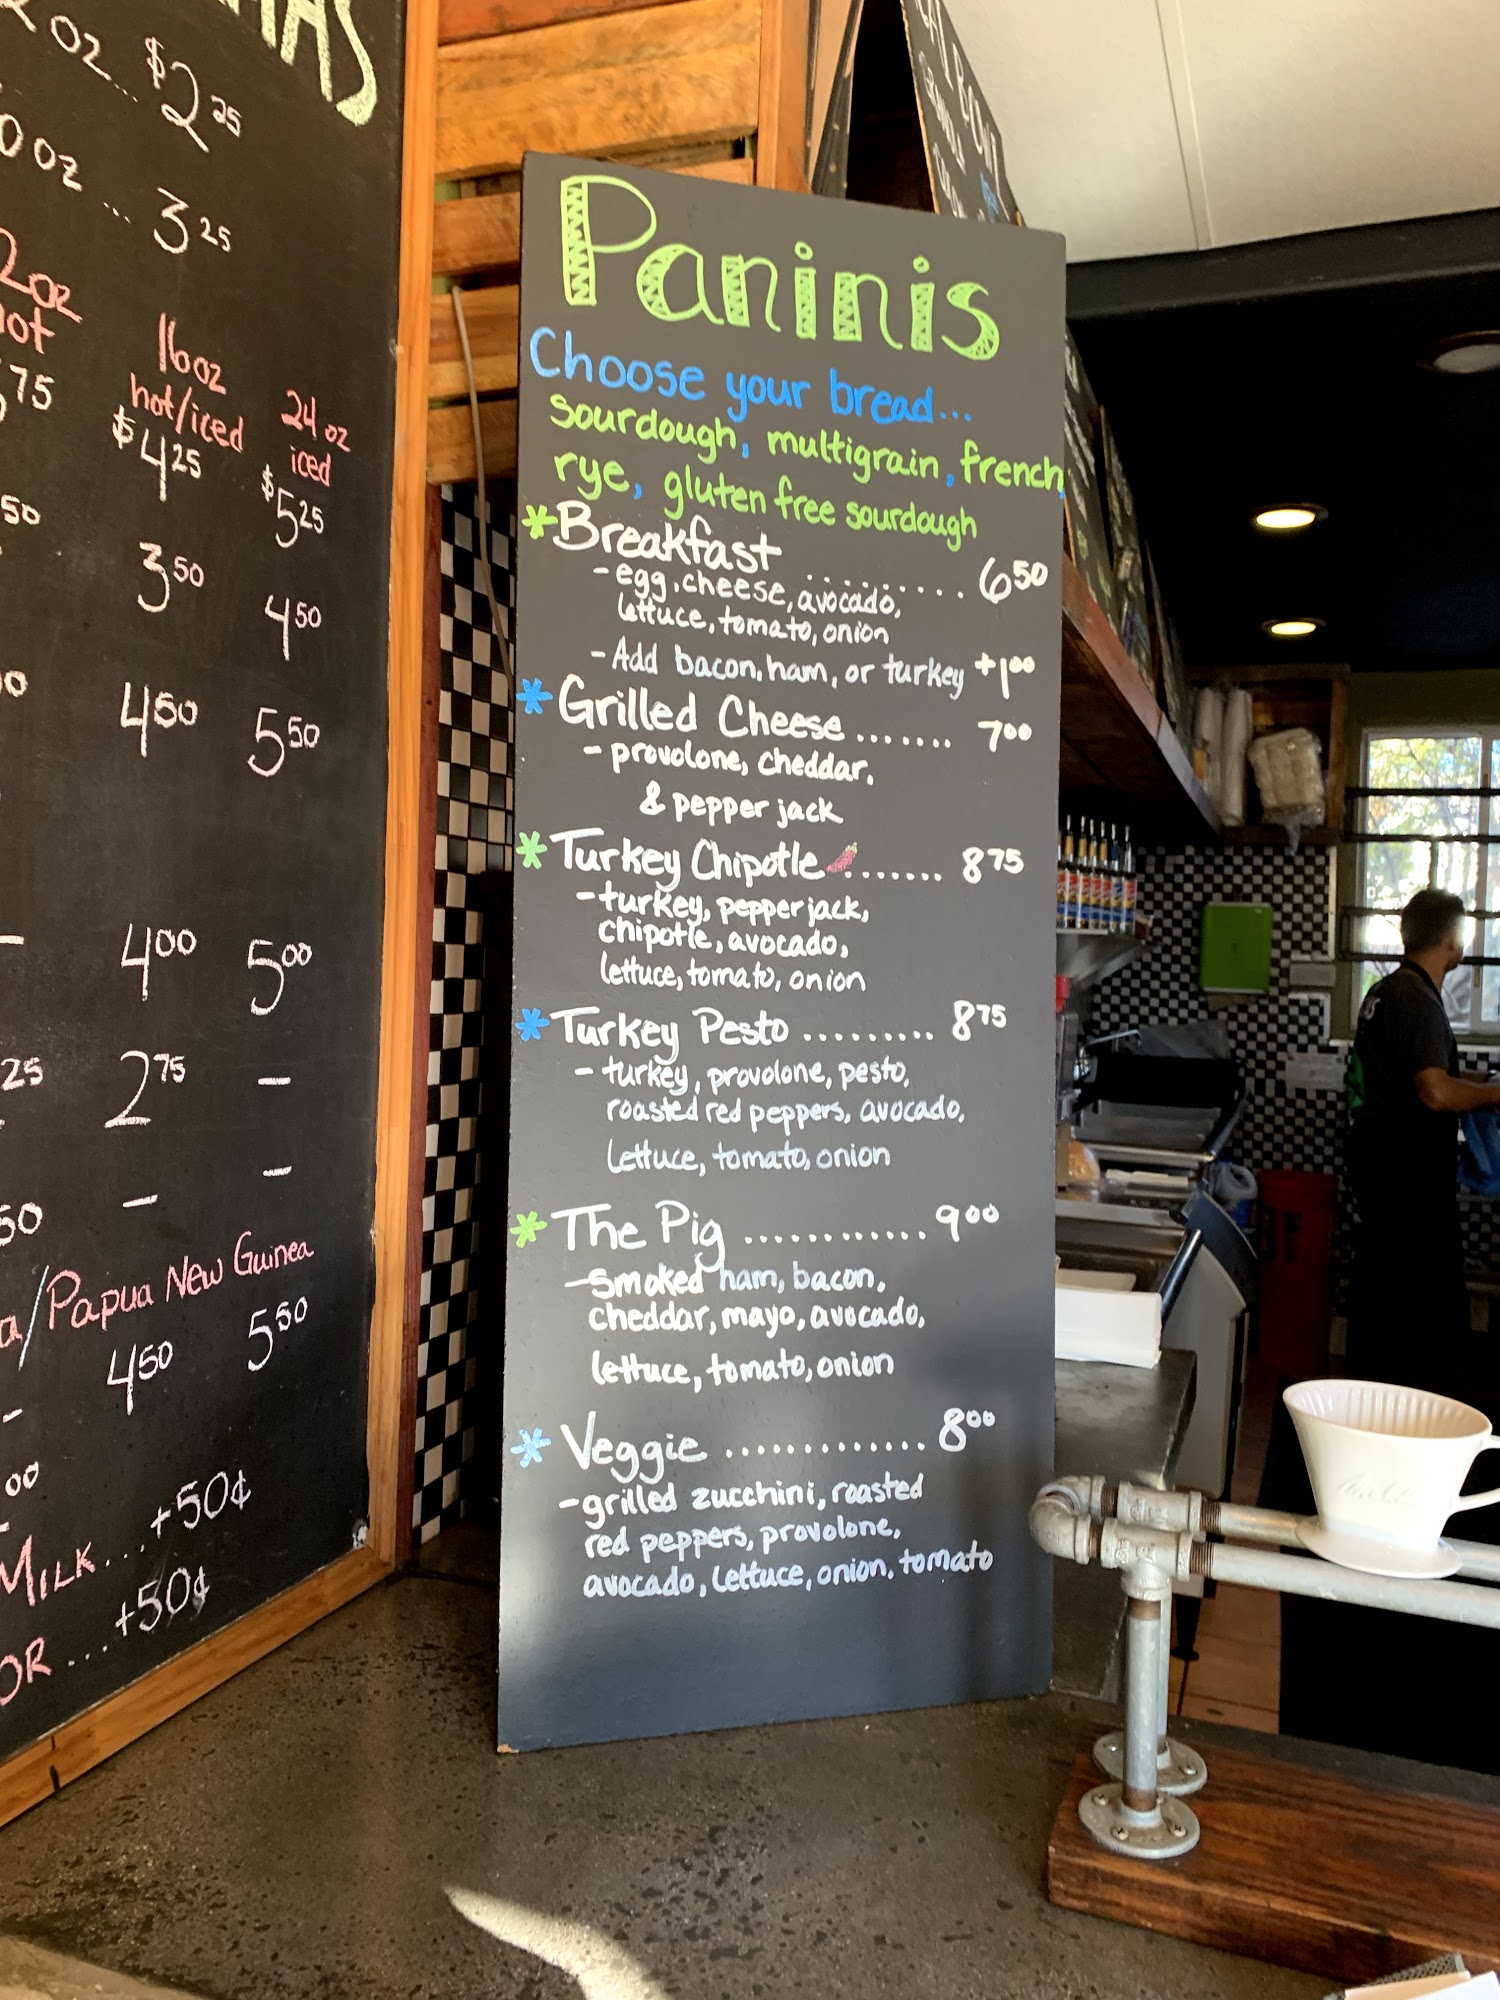 2 oz ... $2 25
0 oz ... 3 25
2oz
hot
16oz
hot/iced
24 oz
iced
75 $4 25 $5 25
50 3 50 4 50
4 50 5 50
- 4 00 5 00
25 2 75 -
50 - -
a/Papua New Guinea
- 4 50 5 50
00
Milk... +50¢
OR .... +50¢
Paninis
Choose your bread...
sourdough, multigrain, french,
rye, gluten free sourdough
*Breakfast ......... 6 50
- egg, cheese, avocado,
lettuce, tomato, onion
- Add bacon, ham, or turkey +1 00
*Grilled Cheese ....... 7 00
- provolone, cheddar,
& pepper jack
*Turkey Chipotle ....... 8 75
- turkey, pepper jack,
chipotle, avocado,
lettuce, tomato, onion
*Turkey Pesto ......... 8 75
- turkey, provolone, pesto,
roasted red peppers, avocado,
lettuce, tomato, onion
*The Pig ............ 9 00
- smoked ham, bacon,
cheddar, mayo, avocado,
lettuce, tomato, onion
*Veggie ............. 8 00
- grilled zucchini, roasted
red peppers, provolone,
avocado, lettuce, onion, tomato